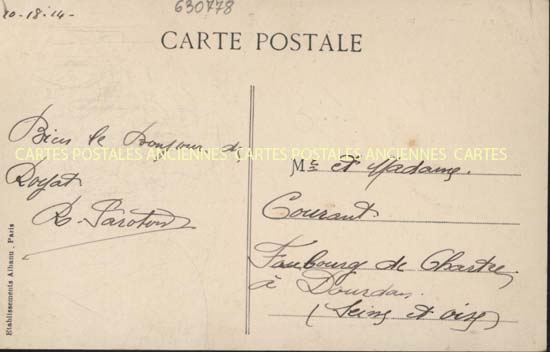 10-18-14-
630778
CARTE POSTALE
Bien le bonjour de
Royat
CARTES POSTALES ANCIENNES CARTES POSTALES ANCIENNES CARTES
Mr et Madame
Courant
Faubourg de Chartres
à Dourdan
(Seine et Oise)
Etablissements Albanu, Paris